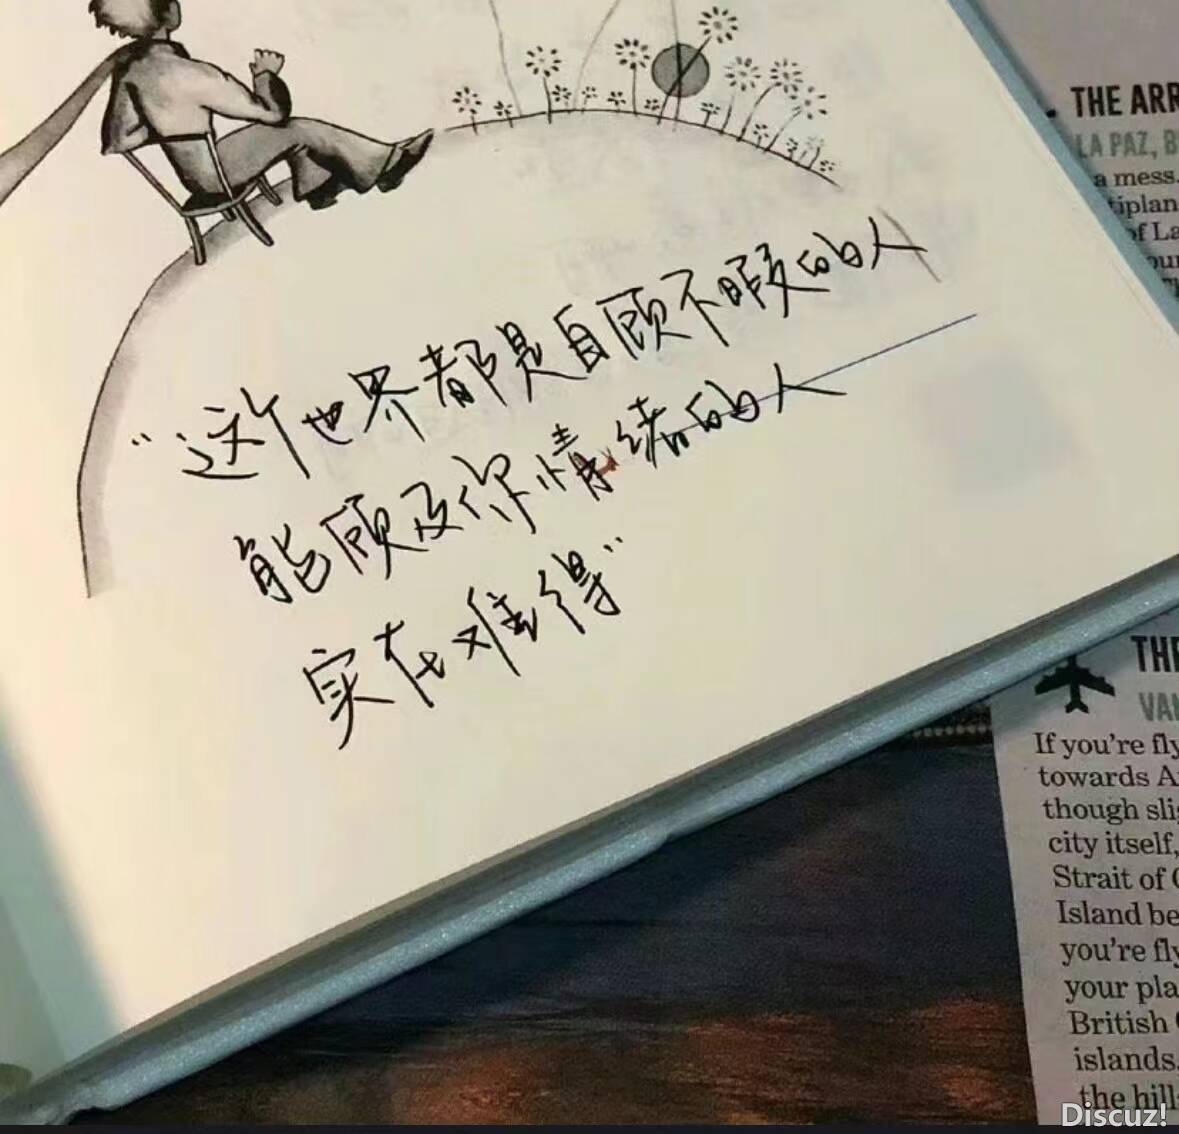 “这个世界都是自顾不暇的人
能顾及你情绪的人
实在难得”
THE ARR
LA PAZ, B
a mess.
tiplan
of La
our
THE
VAN
If you're fly
towards A
though slig
city itself,
Strait of
Island be
you're fly
your pla
British
islands.
the hill
Discuz!